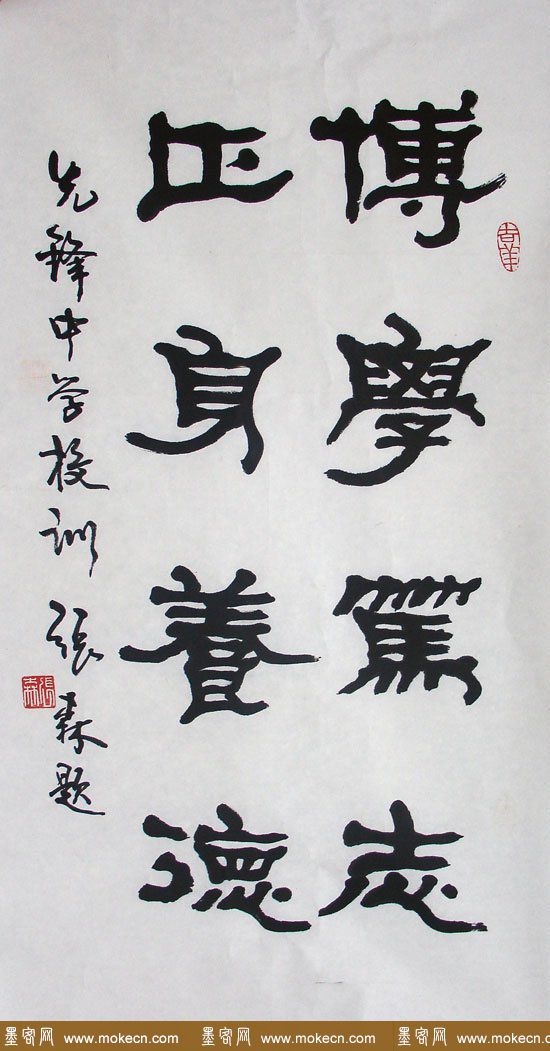 博學篤志
正身養德
先鋒中学校训 張森题
吉羊
張森
墨客网 www.mokecn.com 墨客网 www.mokecn.com 墨客网 www.mokecn.com